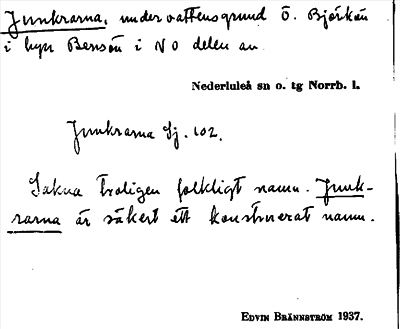 Junkrarna, undervattensgrund Ö. Björkön
i hyn Bensön i NO delen av
Nederluleå sn o. tg Norrb. l.
Junkrarna Sj. 102.
Sakna troligen folkligt namn. Junk-
rarna är säkert ett konstruerat namn.
EDVIN BRÄNNSTRÖM 1937.